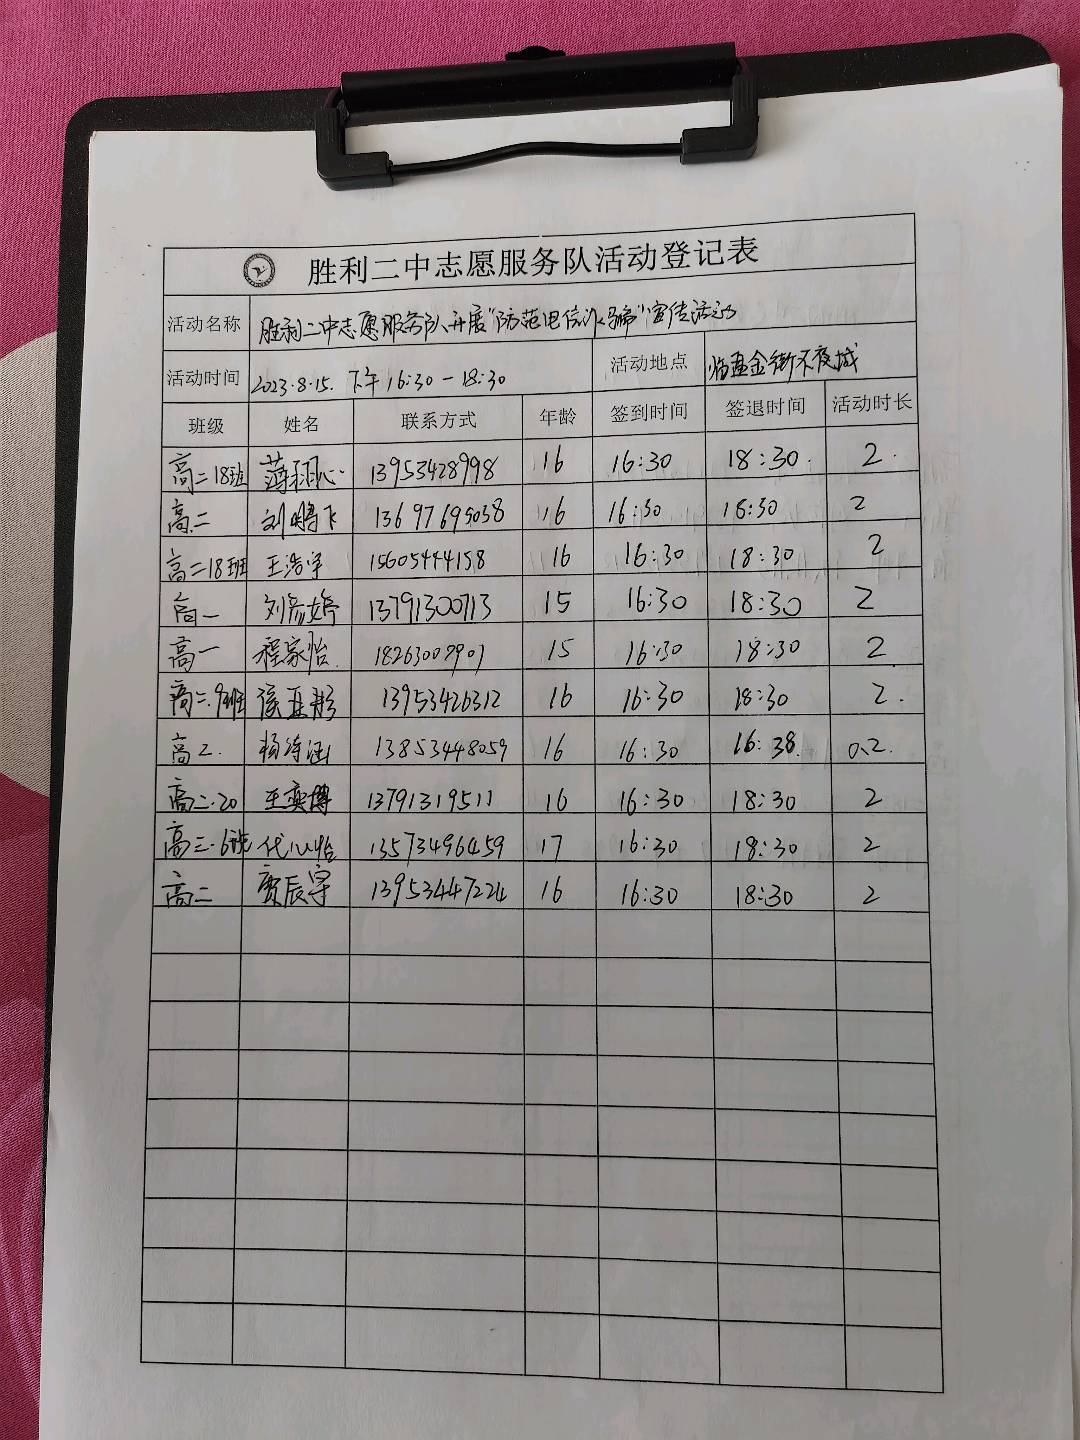 胜利二中志愿服务队活动登记表
活动名称 胜利二中志愿服务队开展“防范电信诈骗”宣传活动
活动时间 2023.8.15. 下午 16:30-18:30 活动地点 临盘金街不夜城
班级 姓名 联系方式 年龄 签到时间 签退时间 活动时长
高二18班 薄翔心 13953428998 16 16:30 18:30. 2.
高二 刘鹏飞 13697695038 16 16:30 18:30 2
高二18班 王浩宇 15605444158 16 16:30 18:30 2
高一 刘彦婷 13791300713 15 16:30 18:30 2
高一 程家怡. 18263007901 15 16:30 18:30 2
高二.9班 13953426312 16 16:30 18:30 2.
高2. 杨诗涵 13853448059 16 16:30 16:38. 0.2.
高二.20 王奕博 13791319511 16 16:30 18:30 2
高三.6班 代心怡 13573496459 17 16:30 18:30 2
高二 贾辰宇 13953447224 16 16:30 18:30 2